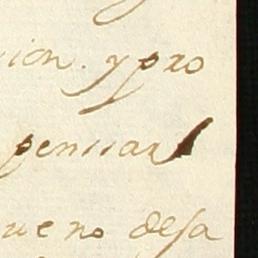 cion. y pro
pensar
ueno desa